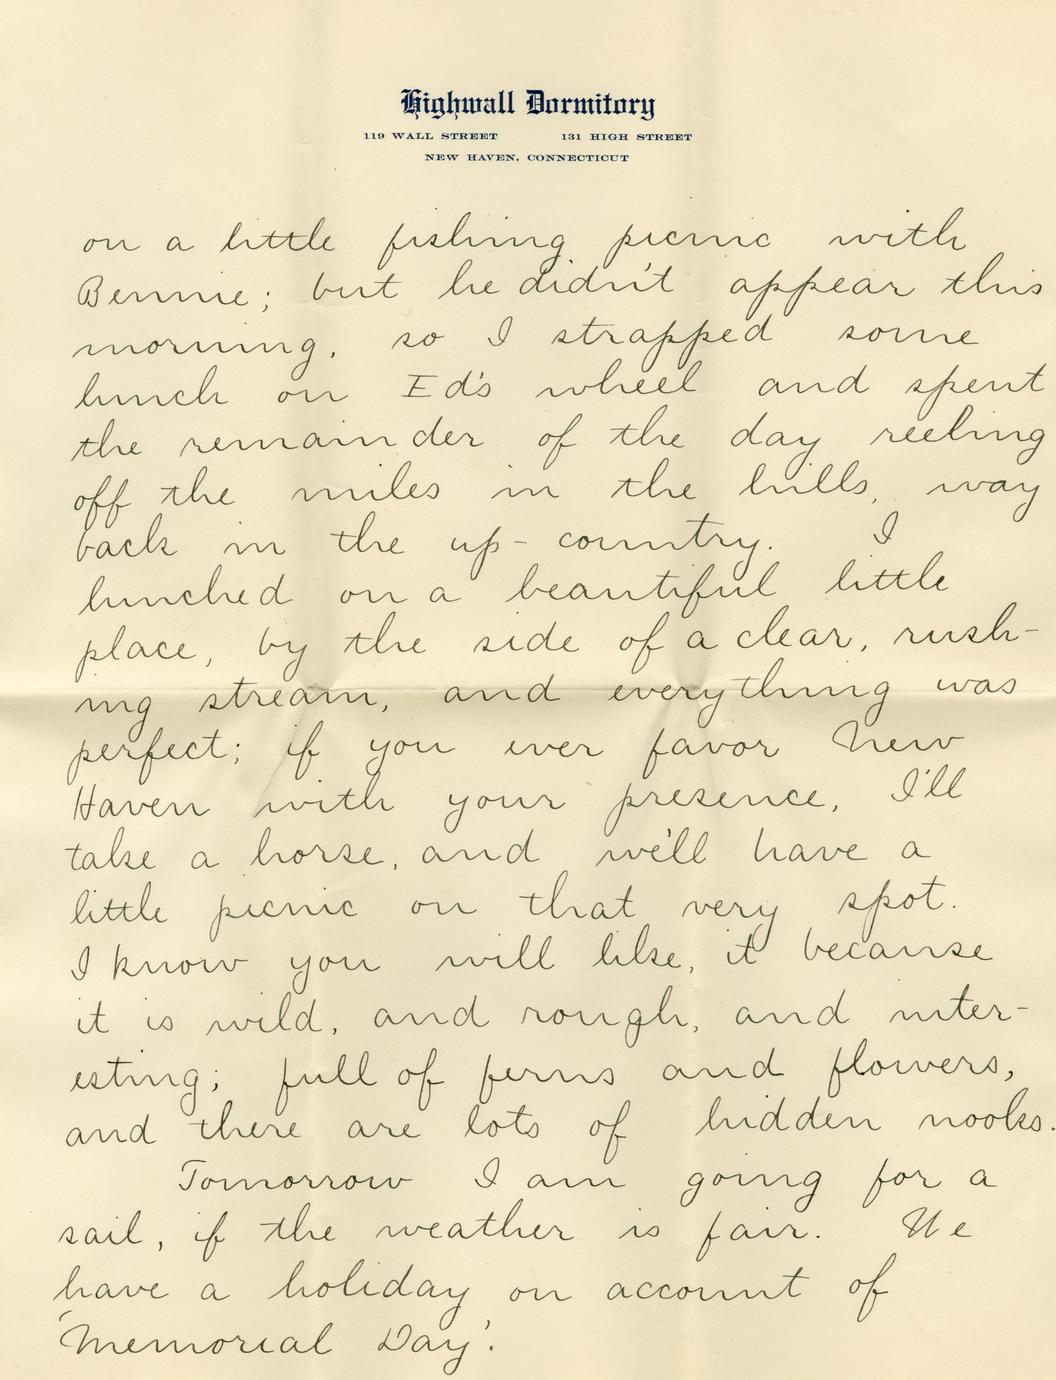 Highwall Dormitory
119 WALL STREET 131 HIGH STREET
NEW HAVEN, CONNECTICUT
on a little fishing picnic with
Bennie; but he didn't appear this
morning, so I strapped some
lunch on Ed's wheel and spent
the remainder of the day reeling
off the miles in the hills, way
back in the up-country. I
lunched on a beautiful little
place, by the side of a clear, rush-
ing stream, and everything was
perfect; if you ever favor New
Haven with your presence, I'll
take a horse, and we'll have a
little picnic on that very spot.
I know you will like, it because
it is wild, and rough, and inter-
esting; full of ferns and flowers,
and there are lots of hidden nooks.
Tomorrow I am going for a
sail, if the weather is fair. We
have a holiday on account of
'Memorial Day'.